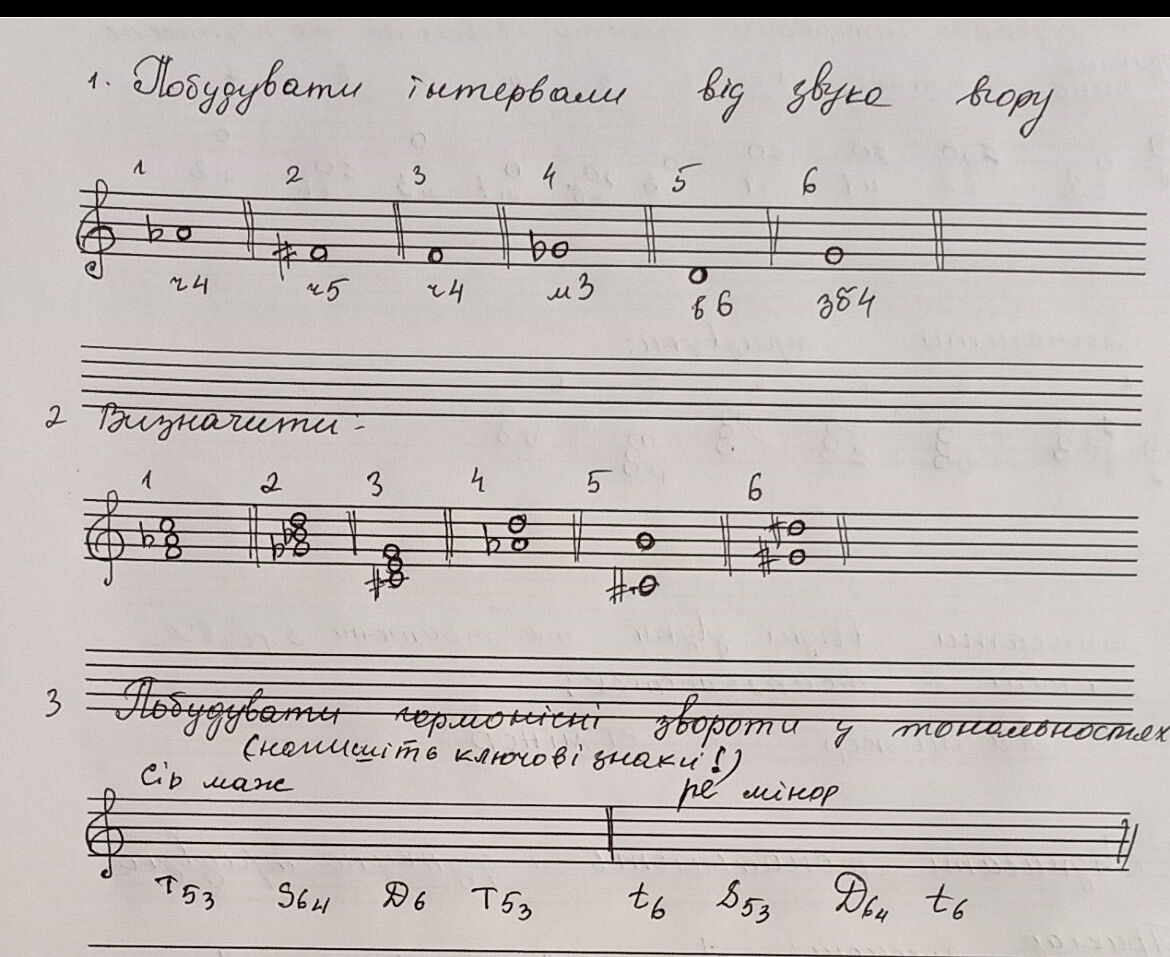 1. Побудувати інтервали від звука вгору
1 2 3 4 5 6
ч4 ч5 ч4 м3 в6 зб4
2 Визначити:
1 2 3 4 5 6
3 Побудувати гармонісні звороти у тональностях
(напишіть ключові знаки!)
Сіb маж ре мінор
T53 S64 D6 T53 t6 S53 D64 t6